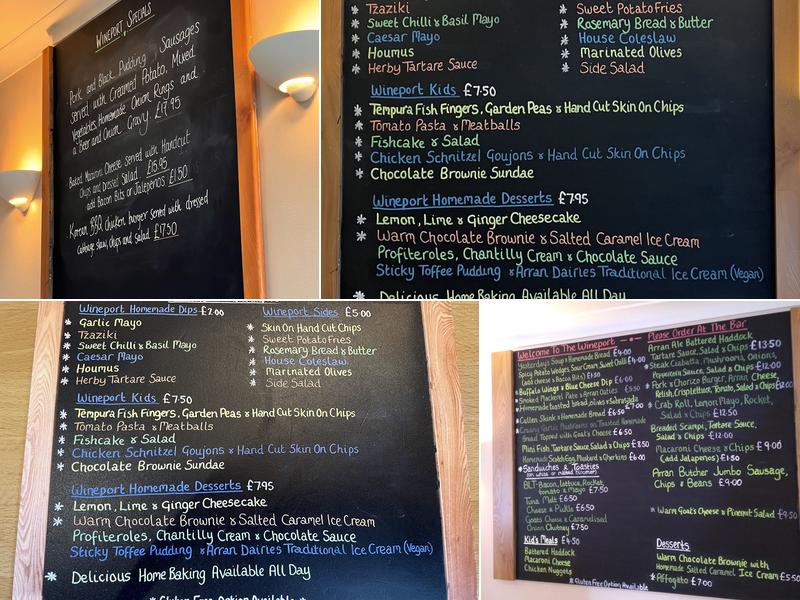 Wineport Specials
Pork and Black Pudding Sausages
served with Creamed Potato, Mixed
Vegetables, Homemade Onion Rings and
a Beer and Onion Gravy. £17.95
Baked Macaroni Cheese served with Handcut
Chips and dressed Salad £15.95
add Bacon Bits or Jalepenos £1.50
Korean BBQ chicken burger served with dressed
cabbage slaw, chips and salad £17.50
* Tzaziki
* Sweet Chilli & Basil Mayo
* Caesar Mayo
* Houmus
* Herby Tartare Sauce
* Sweet Potato Fries
* Rosemary Bread & Butter
* House Coleslaw
* Marinated Olives
* Side Salad
Wineport Kids £7.50
* Tempura Fish Fingers, Garden Peas & Hand Cut Skin On Chips
* Tomato Pasta & Meatballs
* Fishcake & Salad
* Chicken Schnitzel Goujons & Hand Cut Skin On Chips
* Chocolate Brownie Sundae
Wineport Homemade Desserts £7.95
* Lemon, Lime & Ginger Cheesecake
* Warm Chocolate Brownie & Salted Caramel Ice Cream
Profiteroles, Chantilly Cream & Chocolate Sauce
Sticky Toffee Pudding & Arran Dairies Traditional Ice Cream (Vegan)
* Delicious Home Baking Available All Day
Wineport Homemade Dips £2.00
* Garlic Mayo
* Tzaziki
* Sweet Chilli & Basil Mayo
* Caesar Mayo
* Houmus
* Herby Tartare Sauce
Wineport Sides £5.00
* Skin On Hand Cut Chips
* Sweet Potato Fries
* Rosemary Bread & Butter
* House Coleslaw
* Marinated Olives
* Side Salad
Wineport Kids £7.50
* Tempura Fish Fingers, Garden Peas & Hand Cut Skin On Chips
* Tomato Pasta & Meatballs
* Fishcake & Salad
* Chicken Schnitzel Goujons & Hand Cut Skin On Chips
* Chocolate Brownie Sundae
Wineport Homemade Desserts £7.95
* Lemon, Lime & Ginger Cheesecake
* Warm Chocolate Brownie & Salted Caramel Ice Cream
Profiteroles, Chantilly Cream & Chocolate Sauce
Sticky Toffee Pudding & Arran Dairies Traditional Ice Cream (Vegan)
* Delicious Home Baking Available All Day
* Gluten Free Option Available *
Welcome To The Wineport
Please Order At The Bar
Yesterdays Soup & Homemade Bread £4.00
Spicy Potato Wedges, Sour Cream, Sweet Chilli £4.00
(add cheese & Bacon Bits) £1.50
* Buffalo Wings & Blue Cheese Dip £6.00
* Smoked Mackerel Pate & Arran Oaties
* Homemade toasted bread, olives &
* Cullen Skink & Homemade Bread £6.50
* Creamy Garlic Mushrooms on Toasted Homemade
Bread Topped with Goat's Cheese £6.50
Mini Fish, Tartare Sauce, Salad & Chips £8.50
Homemade Scotch Egg, Mustard & Gherkins £6.00
* Sandwiches & Toasties
BLT-Bacon, lettuce, Rocket,
tomato & Mayo £7.50
Tuna Melt £6.50
Cheese & Pickle £6.50
Goats Cheese & Caramelised
Onion Chutney £7.50
Kid's Meals £4.50
Battered Haddock
Macaroni Cheese
Chicken Nuggets
Arran Ale Battered Haddock
Tartare Sauce, Salad & Chips £13.50
* Steak Ciabatta, Mushrooms, Onions,
Peppercorn Sauce, Salad & Chips £12.00
* Pork & Chorizo Burger, Arran Cheese,
Relish, Crispy Lettuce, Tomato, Salad & Chips £12.00
* Crab Roll, Lemon Mayo, Rocket,
Salad & Chips £12.50
Breaded Scampi, Tartare Sauce,
Salad & Chips £12.00
Macaroni Cheese & Chips £9.00
(add Jalapenos) £1.50
Arran Butcher Jumbo Sausage,
Chips & Beans £9.00
* Warm Goat's Cheese & Pinenut Salad £9.50
Desserts
Warm Chocolate Brownie with
Homemade Salted Caramel Ice Cream £5.50
* Affogato £7.00
* Gluten Free Option Available